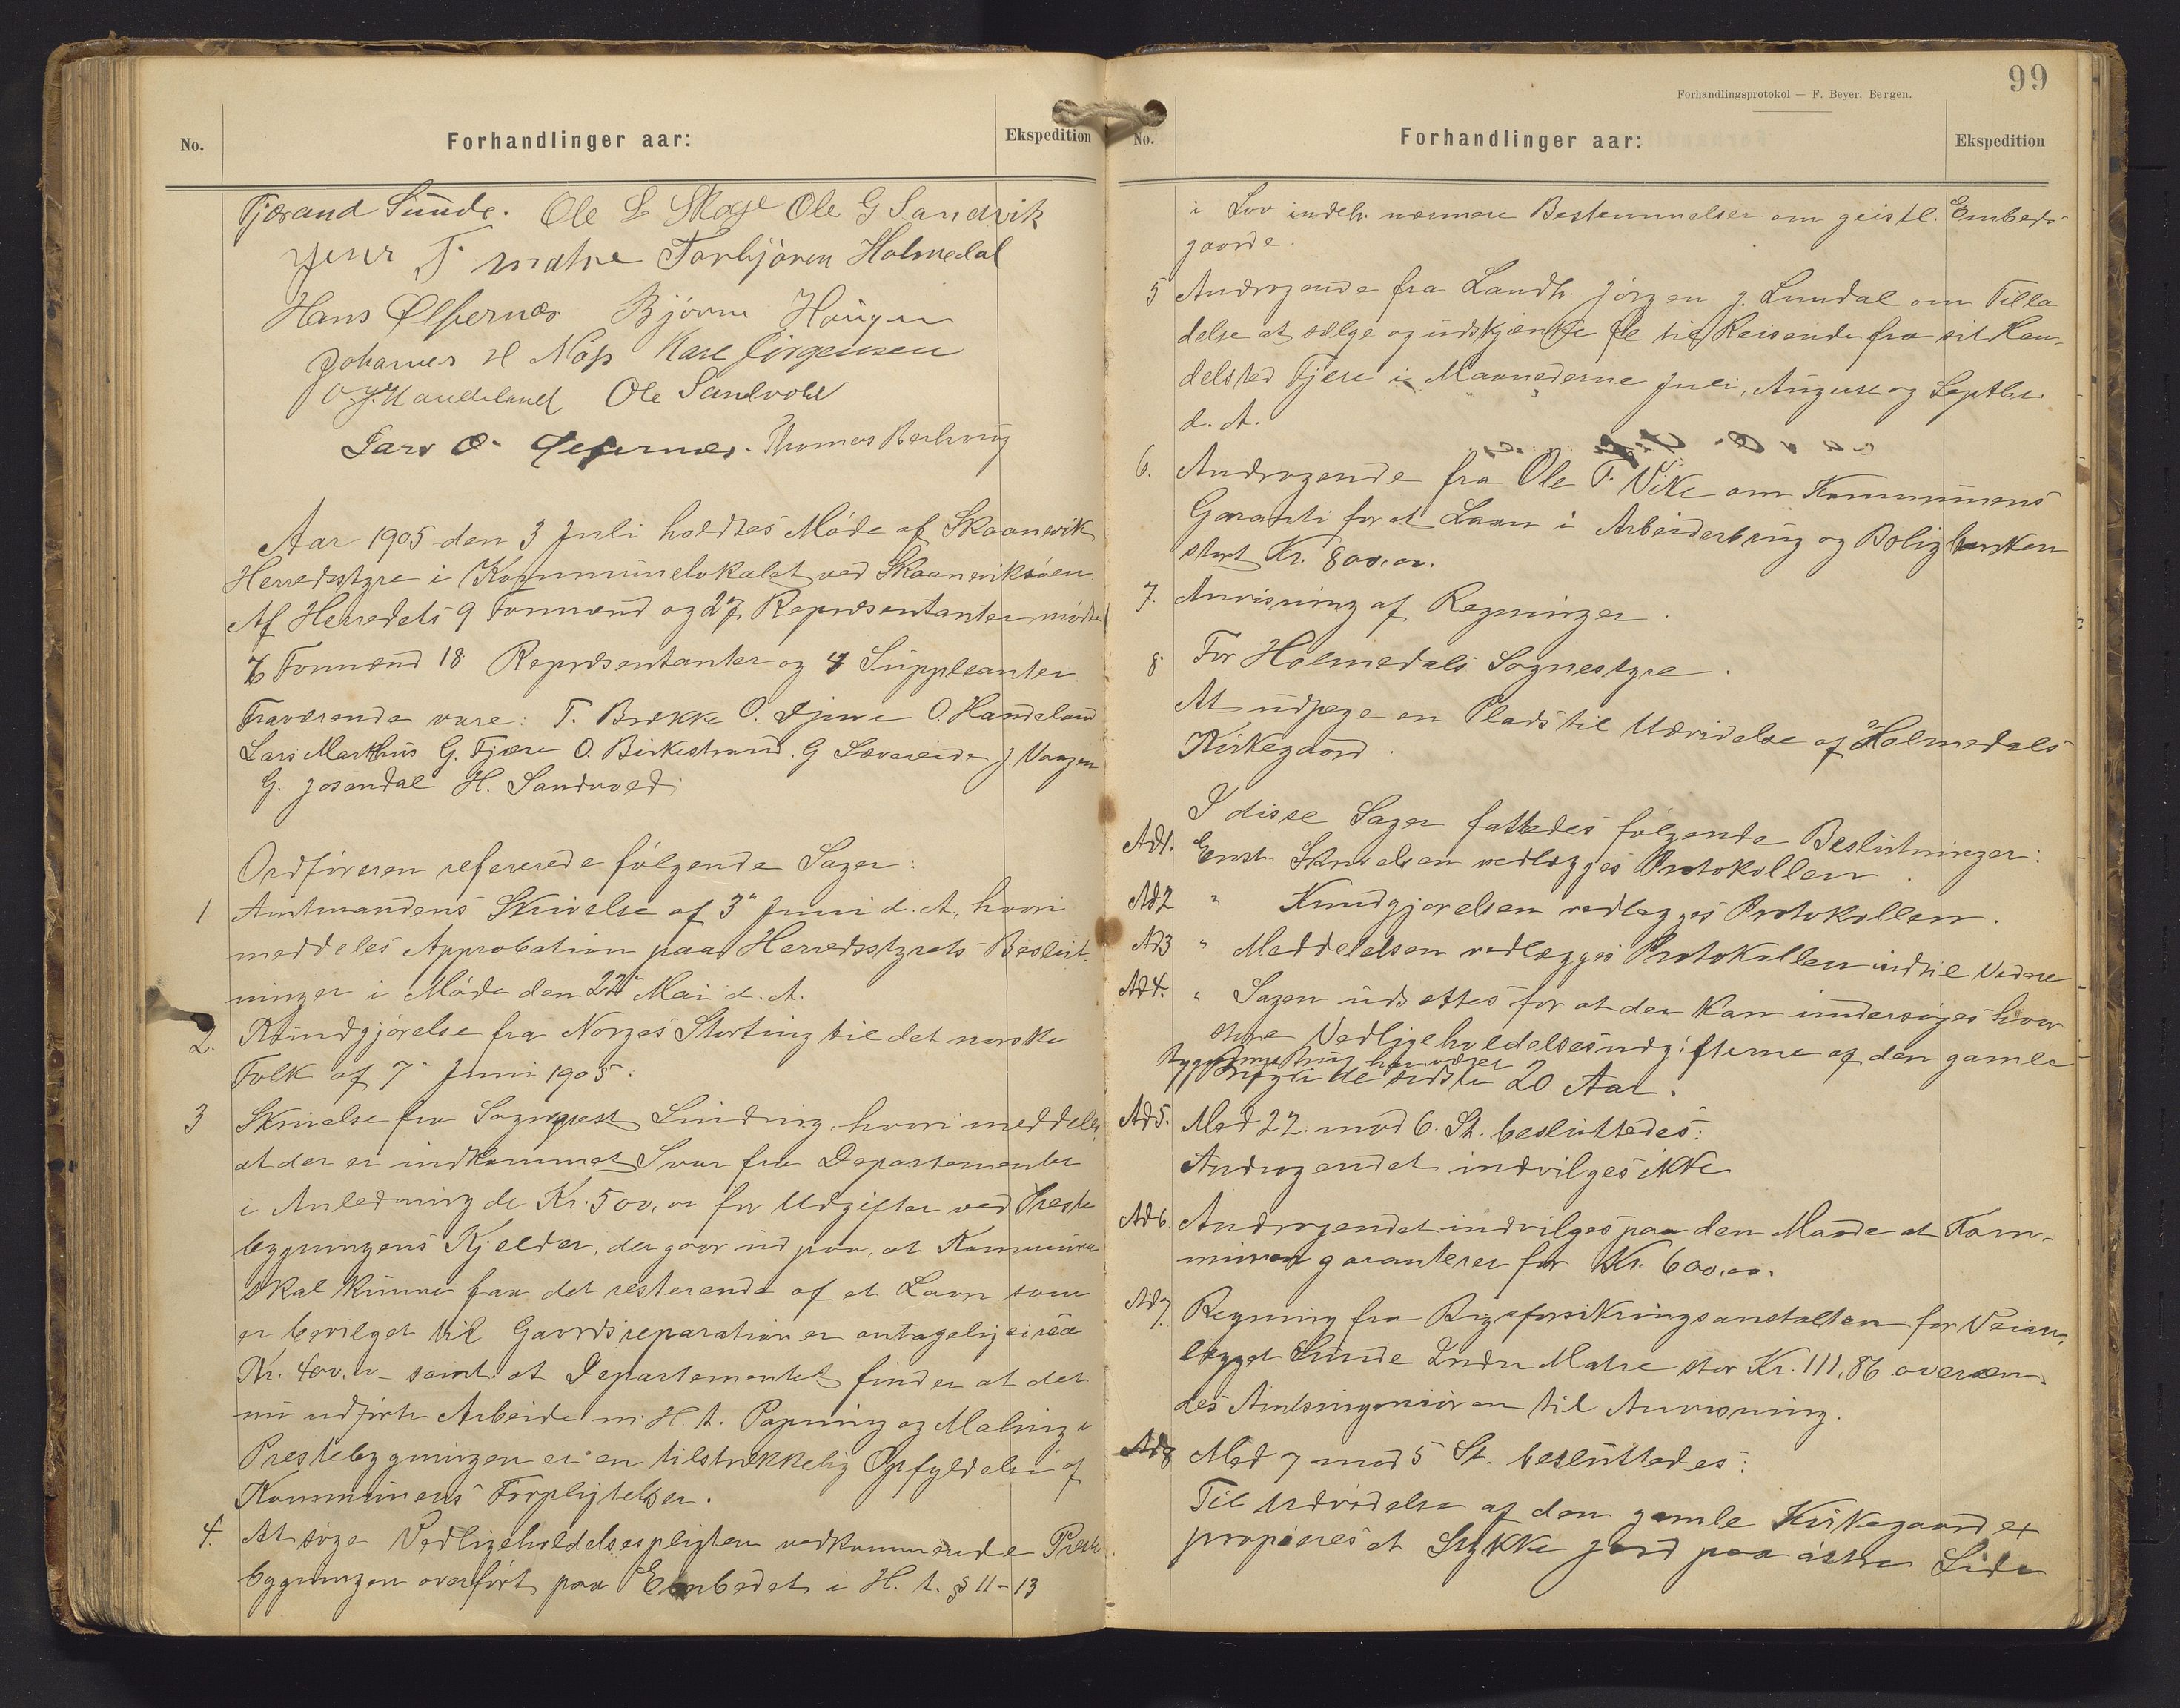 No.
Forhandlinger aar:
Ekspedition
Tjerand Sunde. Ole L Skoge Ole G Sandvik
Jens T. matre Torbjörn Holmedal
Hans Ølfernæs Björne Haugen
Johannes H Næss Karl Jörgensen
O. J. Handeland Ole Sandvold
Lars O. Ølfernæs. Thomas
Aar 1905 den 3 Juli holdtes Möde af Skaanevik
Herredsstyre i Kommunelokalet ved Skaaneviksöen
Af Herredets 9 Formænd og 27 Repræsentanter mödte
Formænd 18 Repræsentanter og 4 Suppleanter.
Fraværende vare: T. Brekke O. O. Handeland
Lars Markhus G. Fjære O. Birkestrand. G Sævareide J. Vaagen
G. Josendal H. Sandvold
Ordföreren refererede fölgende Sager:
1. Amtmandens Skrivelse af 3' Juni d. A., hvori
meddeles Approbation paa Herredsstyrets Beslut-
ninger i Möde den 22' Mai d. A.
2. Kundgjörelse fra Norges Storting til det norske
Folk af 7' Juni 1905.
3 Skrivelse fra Sogneprest Lindring, hvori meddeles
at der er indkommet Svar fra Departementet
i Anledning de Kr. 500,00 for Udgifter ved Preste
bygningens Kjelder, der gaar ud paa, at Kommunen
skal kunne faa det resterende af et Laan som
er bevilget til Gaardsreparationer antagelig circa
Kr. 400,00 samt at Departementet finder at det
nu udförte Arbeide m. H. t. Papning og Maling i
Prestebygningen er en tilstrækkelig Opfyldelse af
Kommunens Forpligtelser.
4. At söge Vedligeholdelsespligten vedkommende Preste
bygningen overfört paa Embedet i H. t. § 11-13
99
Forhandlingsprotokol — F. Beyer, Bergen.
No.
Forhandlinger aar:
Ekspedition
i Lov indeh. nærmere Bestemmelser om geistl. Embeds-
gaarde.
5 Andragende fra Landh. Jörgen J. Lundal om Tilla
delse at sælge og udskjænke Øl til Reisende fra sit Han-
delsted Fjære i Maanederne Juli, August og Septbr.
d. A.
6. Andragende fra Ole T. Vike om Kommunens
Garanti for et Laan i Arbeiderbrug og Boligbanken
stort Kr. 800,00.
7. Anvisning af Regninger.
8 For Holmedals Sognestyre.
At udpege en Plads til Udvidelse af Holmedals
Kirkegaard.
I disse Sager fattedes fölgende Beslutninger:
Ad 1. Enst. Skrivelsen vedlægges Protokollen.
Ad 2 " Kundgjørelsen vedlægges Protokollen.
Ad 3 " Meddelelsen vedlægges Protokollen indtil Videre
Ad 4. " Sagen udsættes for at der kan undersöges hvor
store Vedligeholdelsesudgifterne af den gamle
i de sidste 20 Aar.
Ad 5. Med 22 mod 6 St. besluttedes:
Andragendet indvilges ikke
Ad 6. Andragendet indvilges paa den Maade at Kom-
munen garanterer for Kr. 600,00.
Ad 7. Regning fra Rigsforsikringsanstalten for Veian-
lægget Sunde Indre Matre stor Kr. 111,86 oversen-
des Amtsingeniören til Anvisning.
Ad 8 Med 7 mod 5 St. besluttedes:
Til Udvidelse af den gamle Kirkegaard ex
proprieres et Stykke Jord paa östre Side